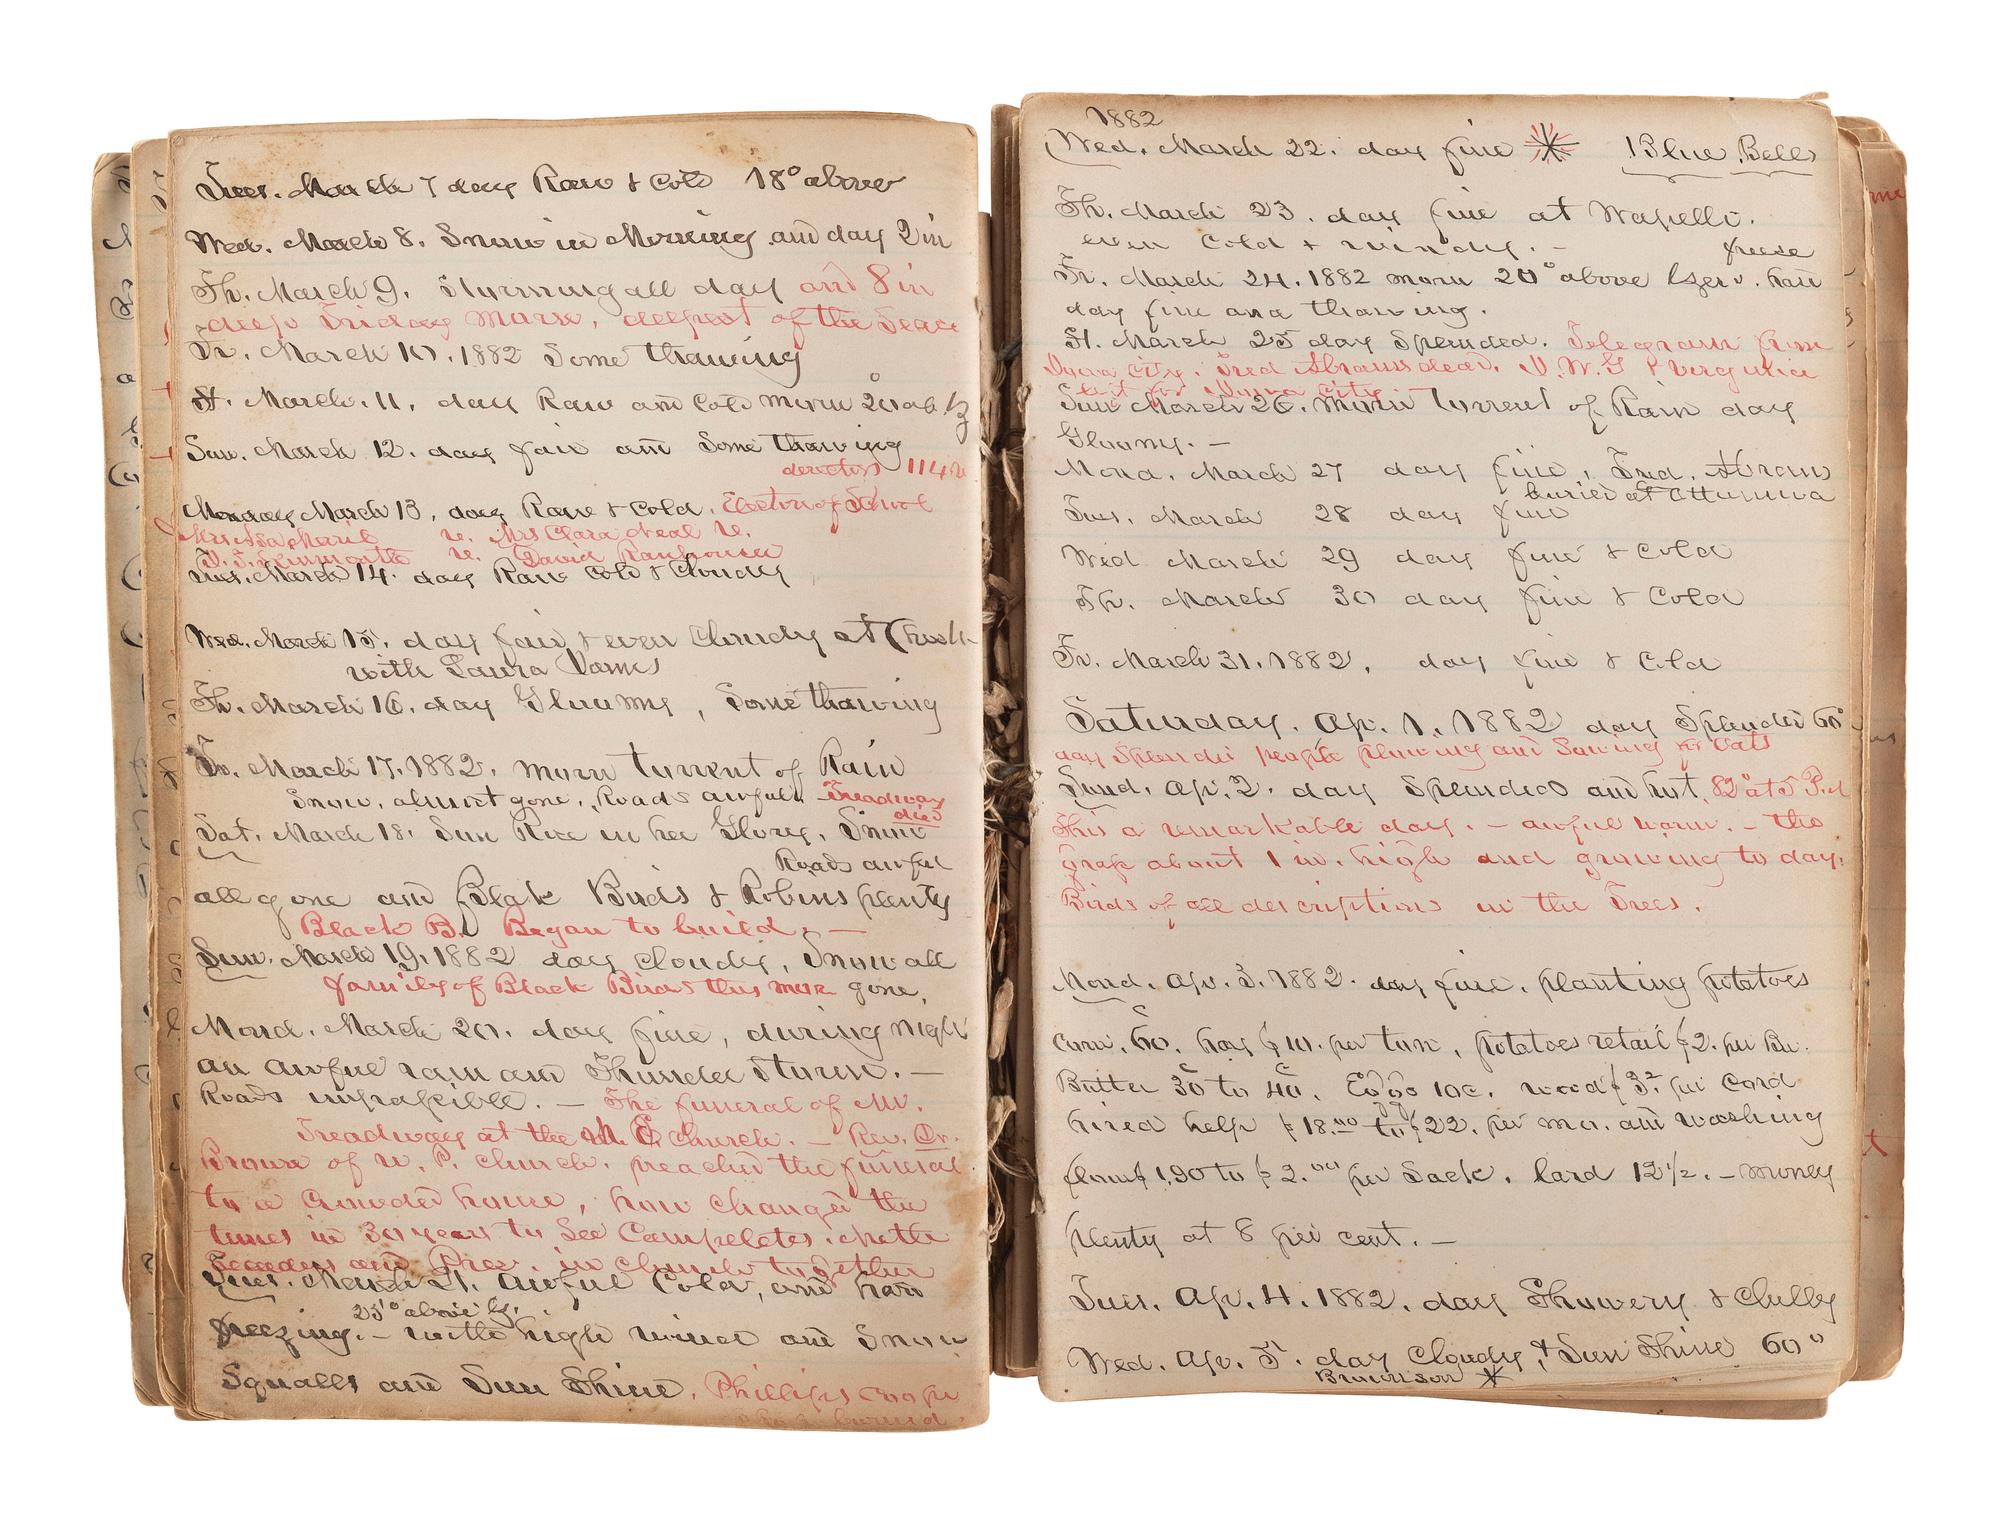 Tues. March 7 day Raw & Cold 18° above
Wed. March 8. Snow in Morning and day 2 in
Th. March 9. Storming all day and 8 in
deep Friday Morn, deepest of the
Fr. March 10. 1882 Some thawing
St. March. 11, day Raw and Cold morn 20 ab
Sun. March 12. day fair and Some thawing
directors 114
Monday March 13, day Raw & Cold. Election of School
Mrs v. Mrs Clara Neal v.
v. David
Tues. March 14. day Raw Cold & Cloudy
Wed. March 15. day fair & even Cloudy at
with Laura
Th. March 16. day Gloomy, Some thawing
Fr. March 17. 1882. morn torrent of Rain
Snow, almost gone, Roads awful Treadway
died
Sat. March 18. Sun Rise in her Glory, Snow
Roads awful
all gone and Blak Birds & Robins plenty
Black B. Began to build. —
Sun. March 19, 1882 day cloudy, Snow all
family of Black Birds this morn gone,
Mond. March 20. day fine, during night
an awful rain and Thunder Storm. —
Roads impassible. — The funeral of Mr.
Treadway at the M. E. Church. — Rev. Dr.
Brown of U. P. Church. preached the funeral
to a Crowded house, how changed the
times in 30 years to See
and Pres. in church together
Tues. March 21. awful Cold, and hard
25° above
freezing. — with high wind and Snow
Squalls and Sun Shine. Phillips
burned.
1882
Wed. March 22. day fine Blue Bells
Th. March 23. day fine at Wapello.
even Cold & windy. — freese
Fr. March 24. 1882 morn 20° above zero. hard
day fine and thawing.
St. March 25 day Splended. Telegram from
Iowa City. Fred Abrams dead. & Virginia
left for Iowa City
Sun March 26. Morn torrent of Rain day
Gloomy. —
Mond. March 27 day fine, Fred. Abrams
buried at Ottumwa
Tues. March 28 day fine
Wed March 29 day fine & Cold
Th. March 30 day fine & Cold
Fr. March 31. 1882, day fine & Cold
Saturday. Ap. 1, 1882 day Splendid 60°
day Splendid people plowing and Sowing Oats
Sund. Ap. 2. day Splendid and hot. 82° at 3 P.M
This a remarkable day. — awful warm. — the
grass about 1 in. high and growing to day.
Birds of all descriptions in the Trees.
Mond. Ap. 3. 1882. day fine. planting potatoes
corn. 60. hay $10. per ton, potatoes retail $2. per Bu.
Butter 30 to 40. Eggs 10c. wood $3. per Cord
hired help $18.00 to $22. per mo. and washing
flour $1.90 to $2.00 per Sack. lard 12 1/2. — money
plenty at 8 per cent. —
Tues. Ap. 4. 1882. day Showery & Chilly
Wed. Ap. 5. day Cloudy, & Sun Shine 60°
Brownson